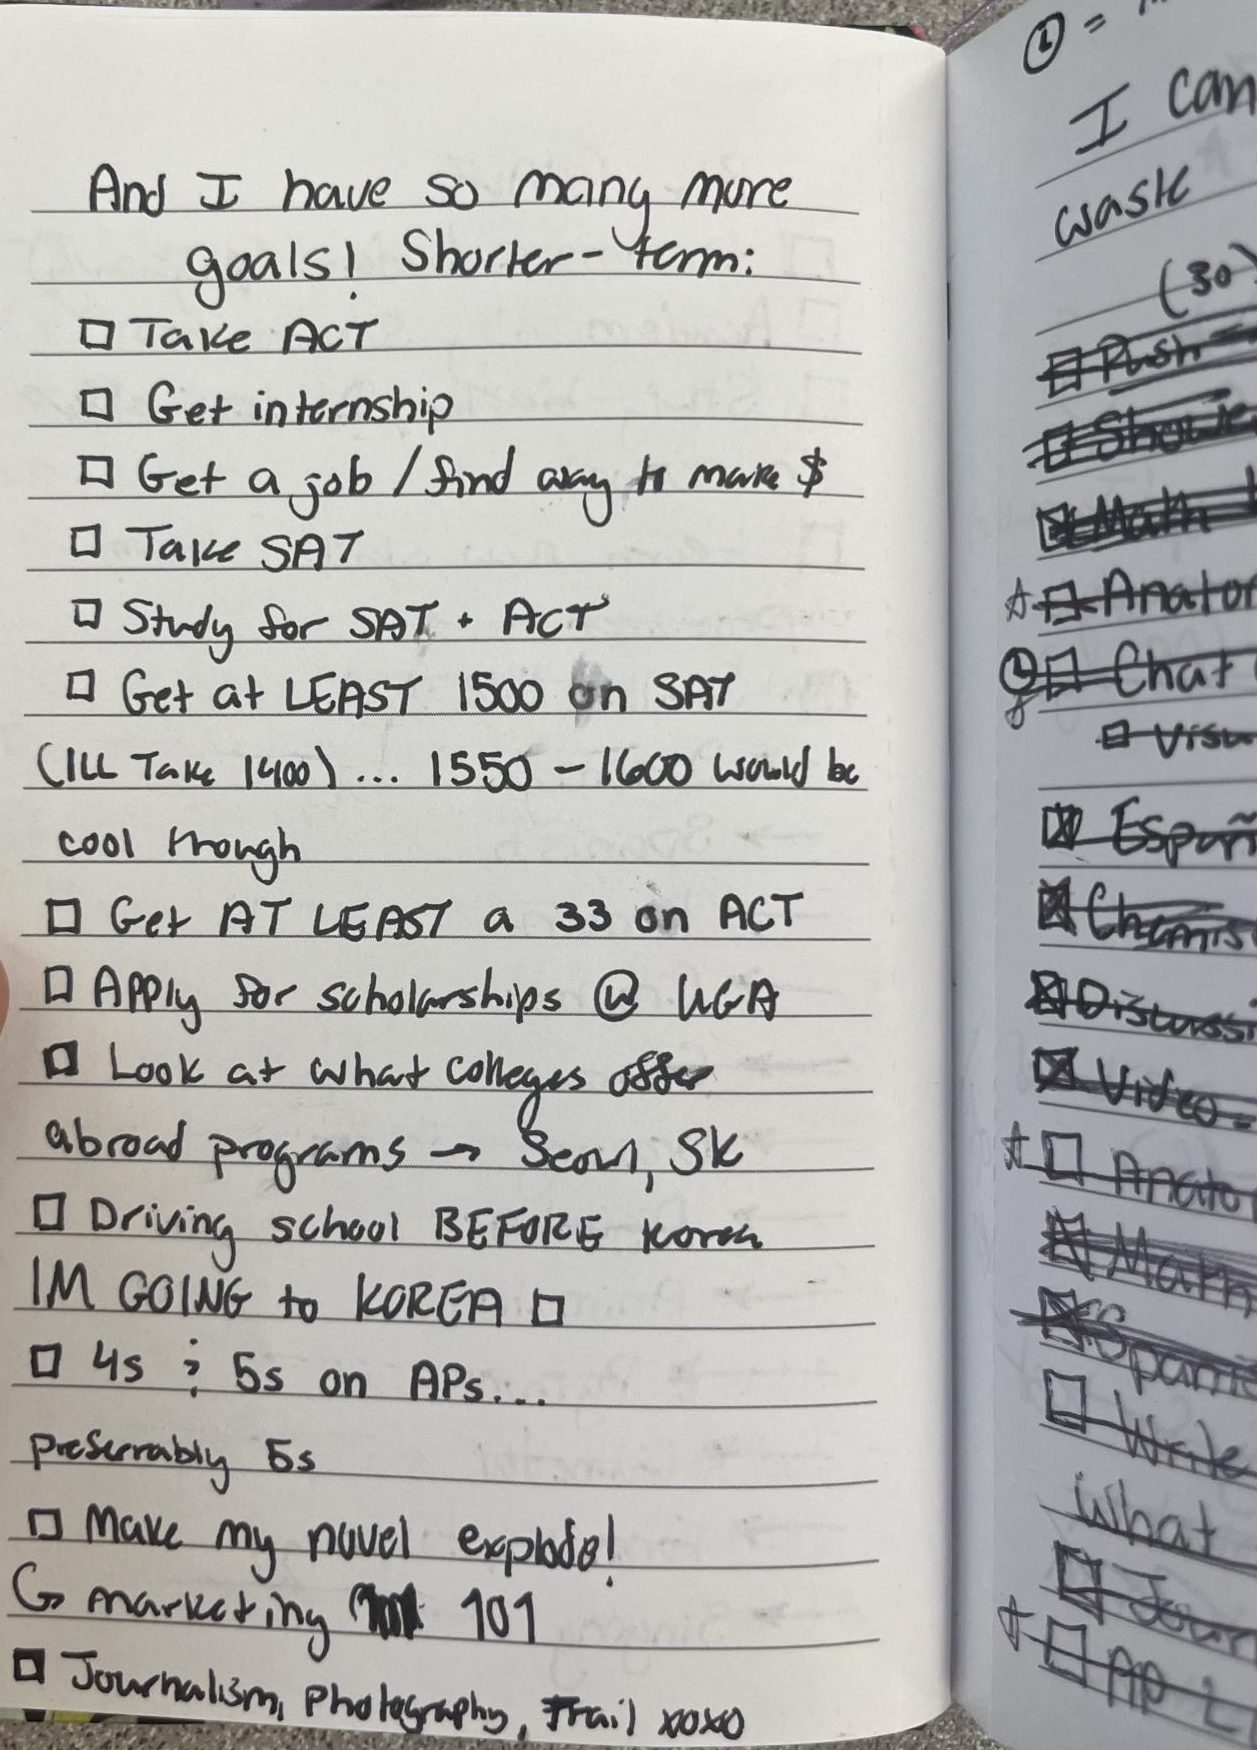 And I have so many more
goals! Shorter-term:
☐ Take ACT
☐ Get internship
☐ Get a job / find way to make $
☐ Take SAT
☐ Study for SAT + ACT
☐ Get at LEAST 1500 on SAT
(ILL Take 1400) ... 1550 - 1600 would be
cool though
☐ Get AT LEAST a 33 on ACT
☐ Apply for scholarships @ UGA
☐ Look at what colleges offer
abroad programs → Seoul, SK
☐ Driving school BEFORE Korea
IM GOING to KOREA ☐
☐ 4s & 5s on APs...
preferrably 5s
☐ Make my novel explode!
↳ marketing 101
☐ Journalism, Photography, Trail xoxo
I can
(30)
Math
☐ Chat
Españ
Chemis
Discussi
Video
Math
☐ Write
what
☐ Jour
☐ AP L